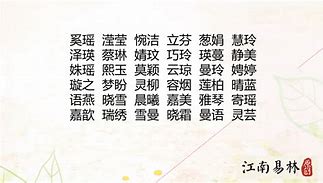 奚瑶 滢莹 惋洁 立芬 葱娟 慧玲
泽瑛 蔡琳 婧玟 巧玲 瑛蔓 静美
姝瑶 熙玉 莫颖 云琼 曼玲 娉婷
璇之 梦盼 灵柳 容烟 莲柏 晴蓝
语燕 晓雪 晨曦 嘉美 雅琴 寄瑶
嘉歆 瑞绣 雪曼 晓霜 曼语 灵芸
江南易林